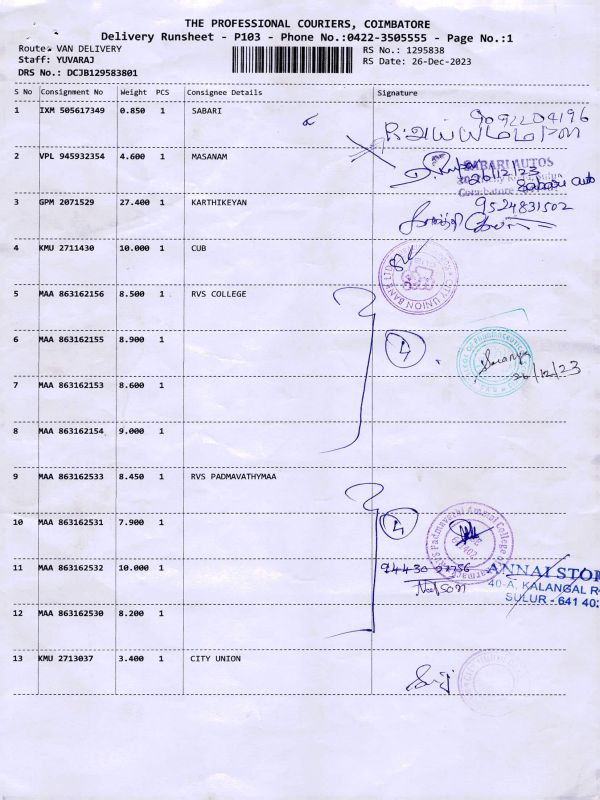 THE PROFESSIONAL COURIERS, COIMBATORE
Delivery Runsheet - P103 - Phone No.:0422-3505555 - Page No.:1
Route: VAN DELIVERY RS No.: 1295838
Staff: YUVARAJ RS Date: 26-Dec-2023
DRS No.: DCJB129583801
S No Consignment No Weight PCS Consignee Details Signature
1 IXM 505617349 0.850 1 SABARI
2 VPL 945932354 4.600 1 MASANAM
26/12/23
Sababu auto
3 GPM 2071529 27.400 1 KARTHIKEYAN 9524831502
4 KMU 2711430 10.000 1 CUB
CITY UNION BANK LTD
5 MAA 863162156 8.500 1 RVS COLLEGE
6 MAA 863162155 8.900 1 4
26/12/23
7 MAA 863162153 8.600 1
8 MAA 863162154 9.000 1
9 MAA 863162533 8.450 1 RVS PADMAVATHYMAA
10 MAA 863162531 7.900 1 4
11 MAA 863162532 10.000 1 94430 27756 ANNAI STOR
Nelson 40-A, KALANGAL R
SULUR - 641 40
12 MAA 863162530 8.200 1
13 KMU 2713037 3.400 1 CITY UNION